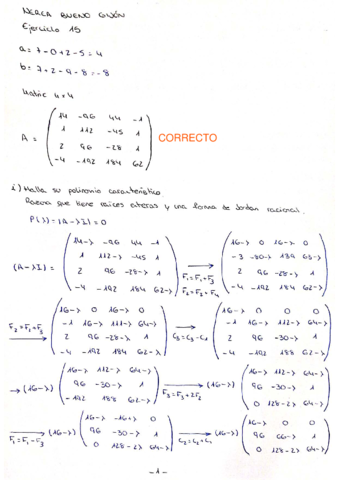 NEREA BUENO GIJÓN
Ejercicio 15
a = 7 - 0 + 2 - 5 = 4
b = 7 + 2 - 9 - 8 = -8
Matriz 4 x 4
A = ( 14 -96 44 -1
1 112 -45 1
2 96 -28 1
-4 -192 184 62 ) CORRECTO
i) Halla su polinomio característico
Razona que tiene raíces enteras y una forma de Jordan racional.
P(λ) = |A - λI| = 0
(A - λI) = ( 14-λ -96 44 -1
1 112-λ -45 1
2 96 -28-λ 1
-4 -192 184 62-λ ) F₁=F₁+F₃ ( 16-λ 0 16-λ 0
2 96 -28-λ 1
-4 -192 184 62-λ )
F₂=F₁+F₂ ( 16-λ 0 16-λ 0
2 96 -28-λ 1
-4 -192 184 62-λ ) C₃=C₃-C₁ ( 16-λ 0 0 0
-1 16-λ 112-λ 64-λ
2 96 -30-λ 1
→ (16-λ) ( 16-λ 112-λ 64-λ
96 -30-λ 1
F₃=F₃+2F₂ (16-λ) ( 16-λ 112-λ 64-λ
96 -30-λ 1
0 128-2λ 64-λ )
F₁=F₁-F₃ (16-λ) ( 16-λ -16+λ 0
96 -30-λ 1
0 128-2λ 64-λ ) C₂=C₂+C₁ (16-λ) ( 16-λ 0 0
96 66-λ 1
0 128-2λ 64-λ )
-1-